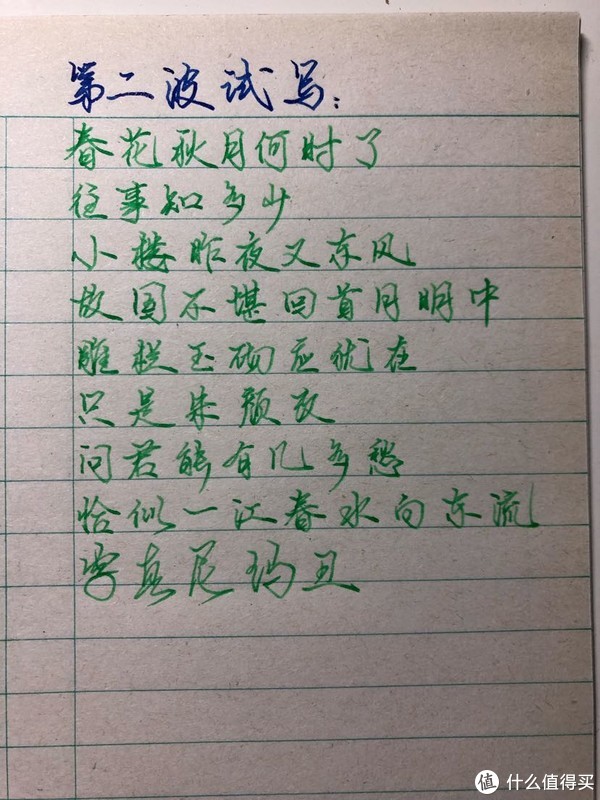 第二波试写：
春花秋月何时了
往事知多少
小楼昨夜又东风
故国不堪回首月明中
雕栏玉砌应犹在
只是朱颜改
问君能有几多愁
恰似一江春水向东流
字真尼玛丑
值 什么值得买